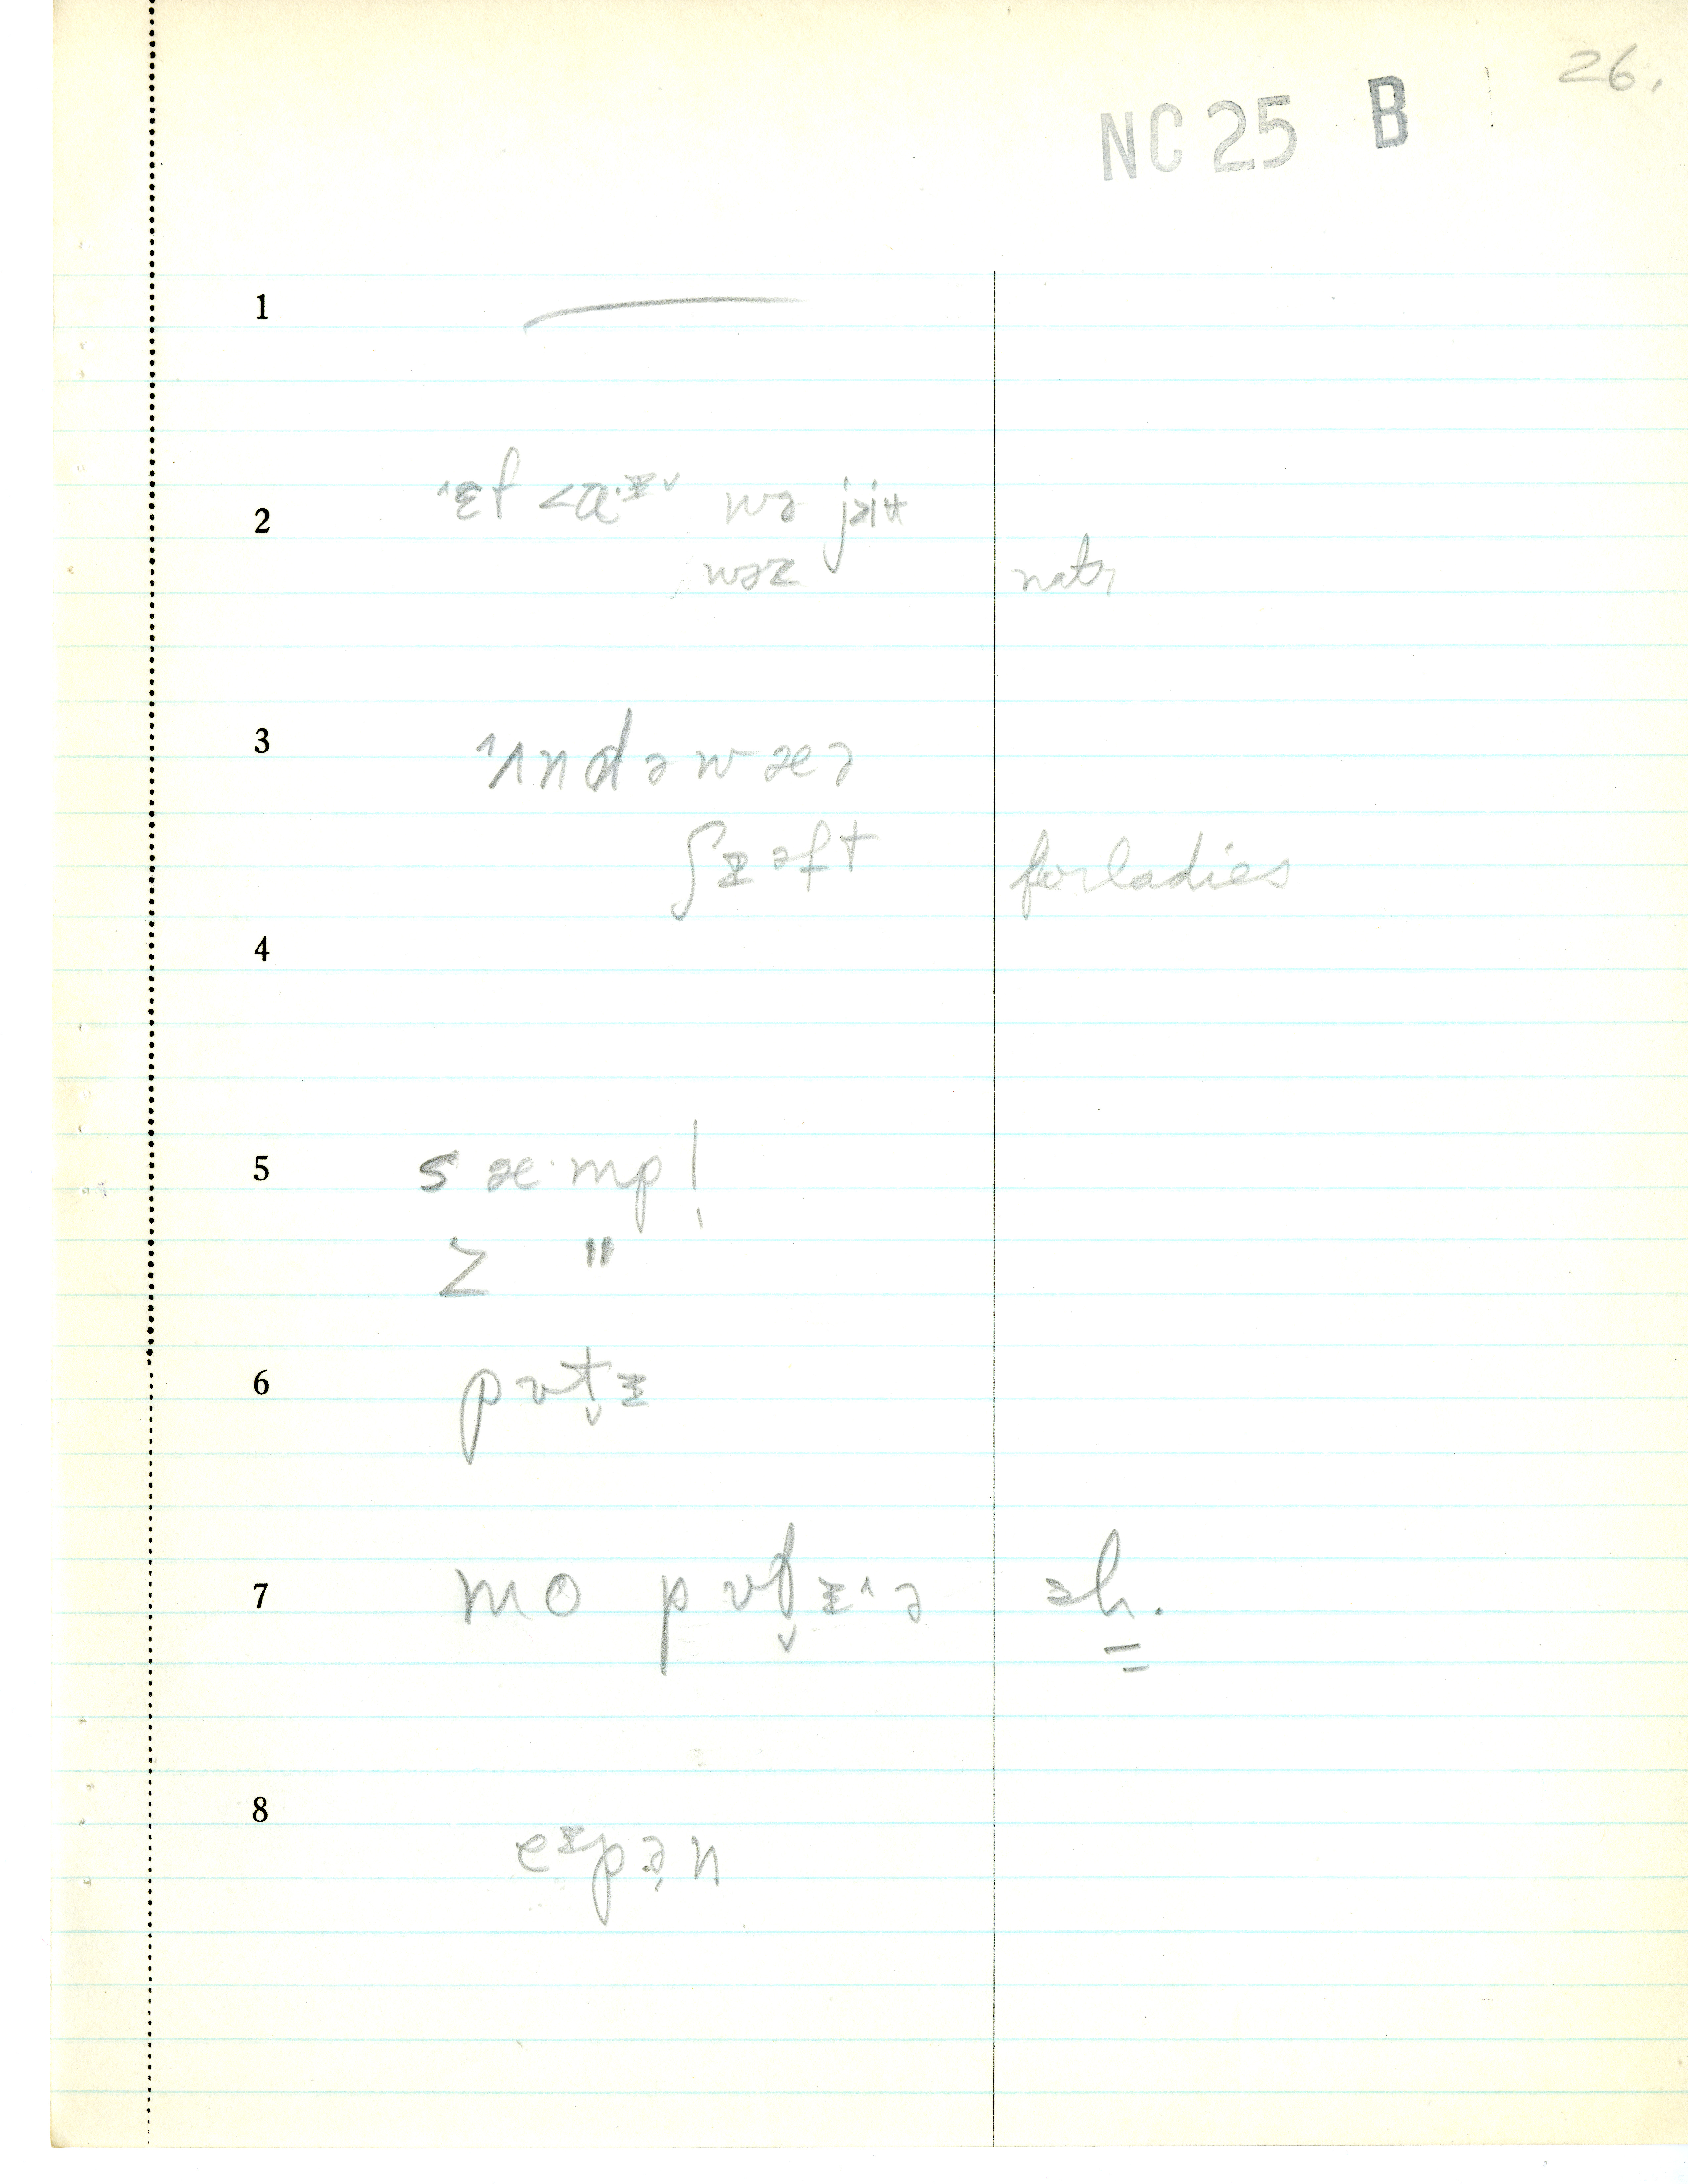 26.
NC 25 B
1 —
2 ˄ɛf <ɑ·ɪ˅ wə
wəz natr
3 ˈʌndəwæə
ʃɪəft for ladies
4
5 s æ· mp!
z "
6 pʊt̬ɪ
7 mo pʊt̬ɪ˄ə sh.
8 eɪpən